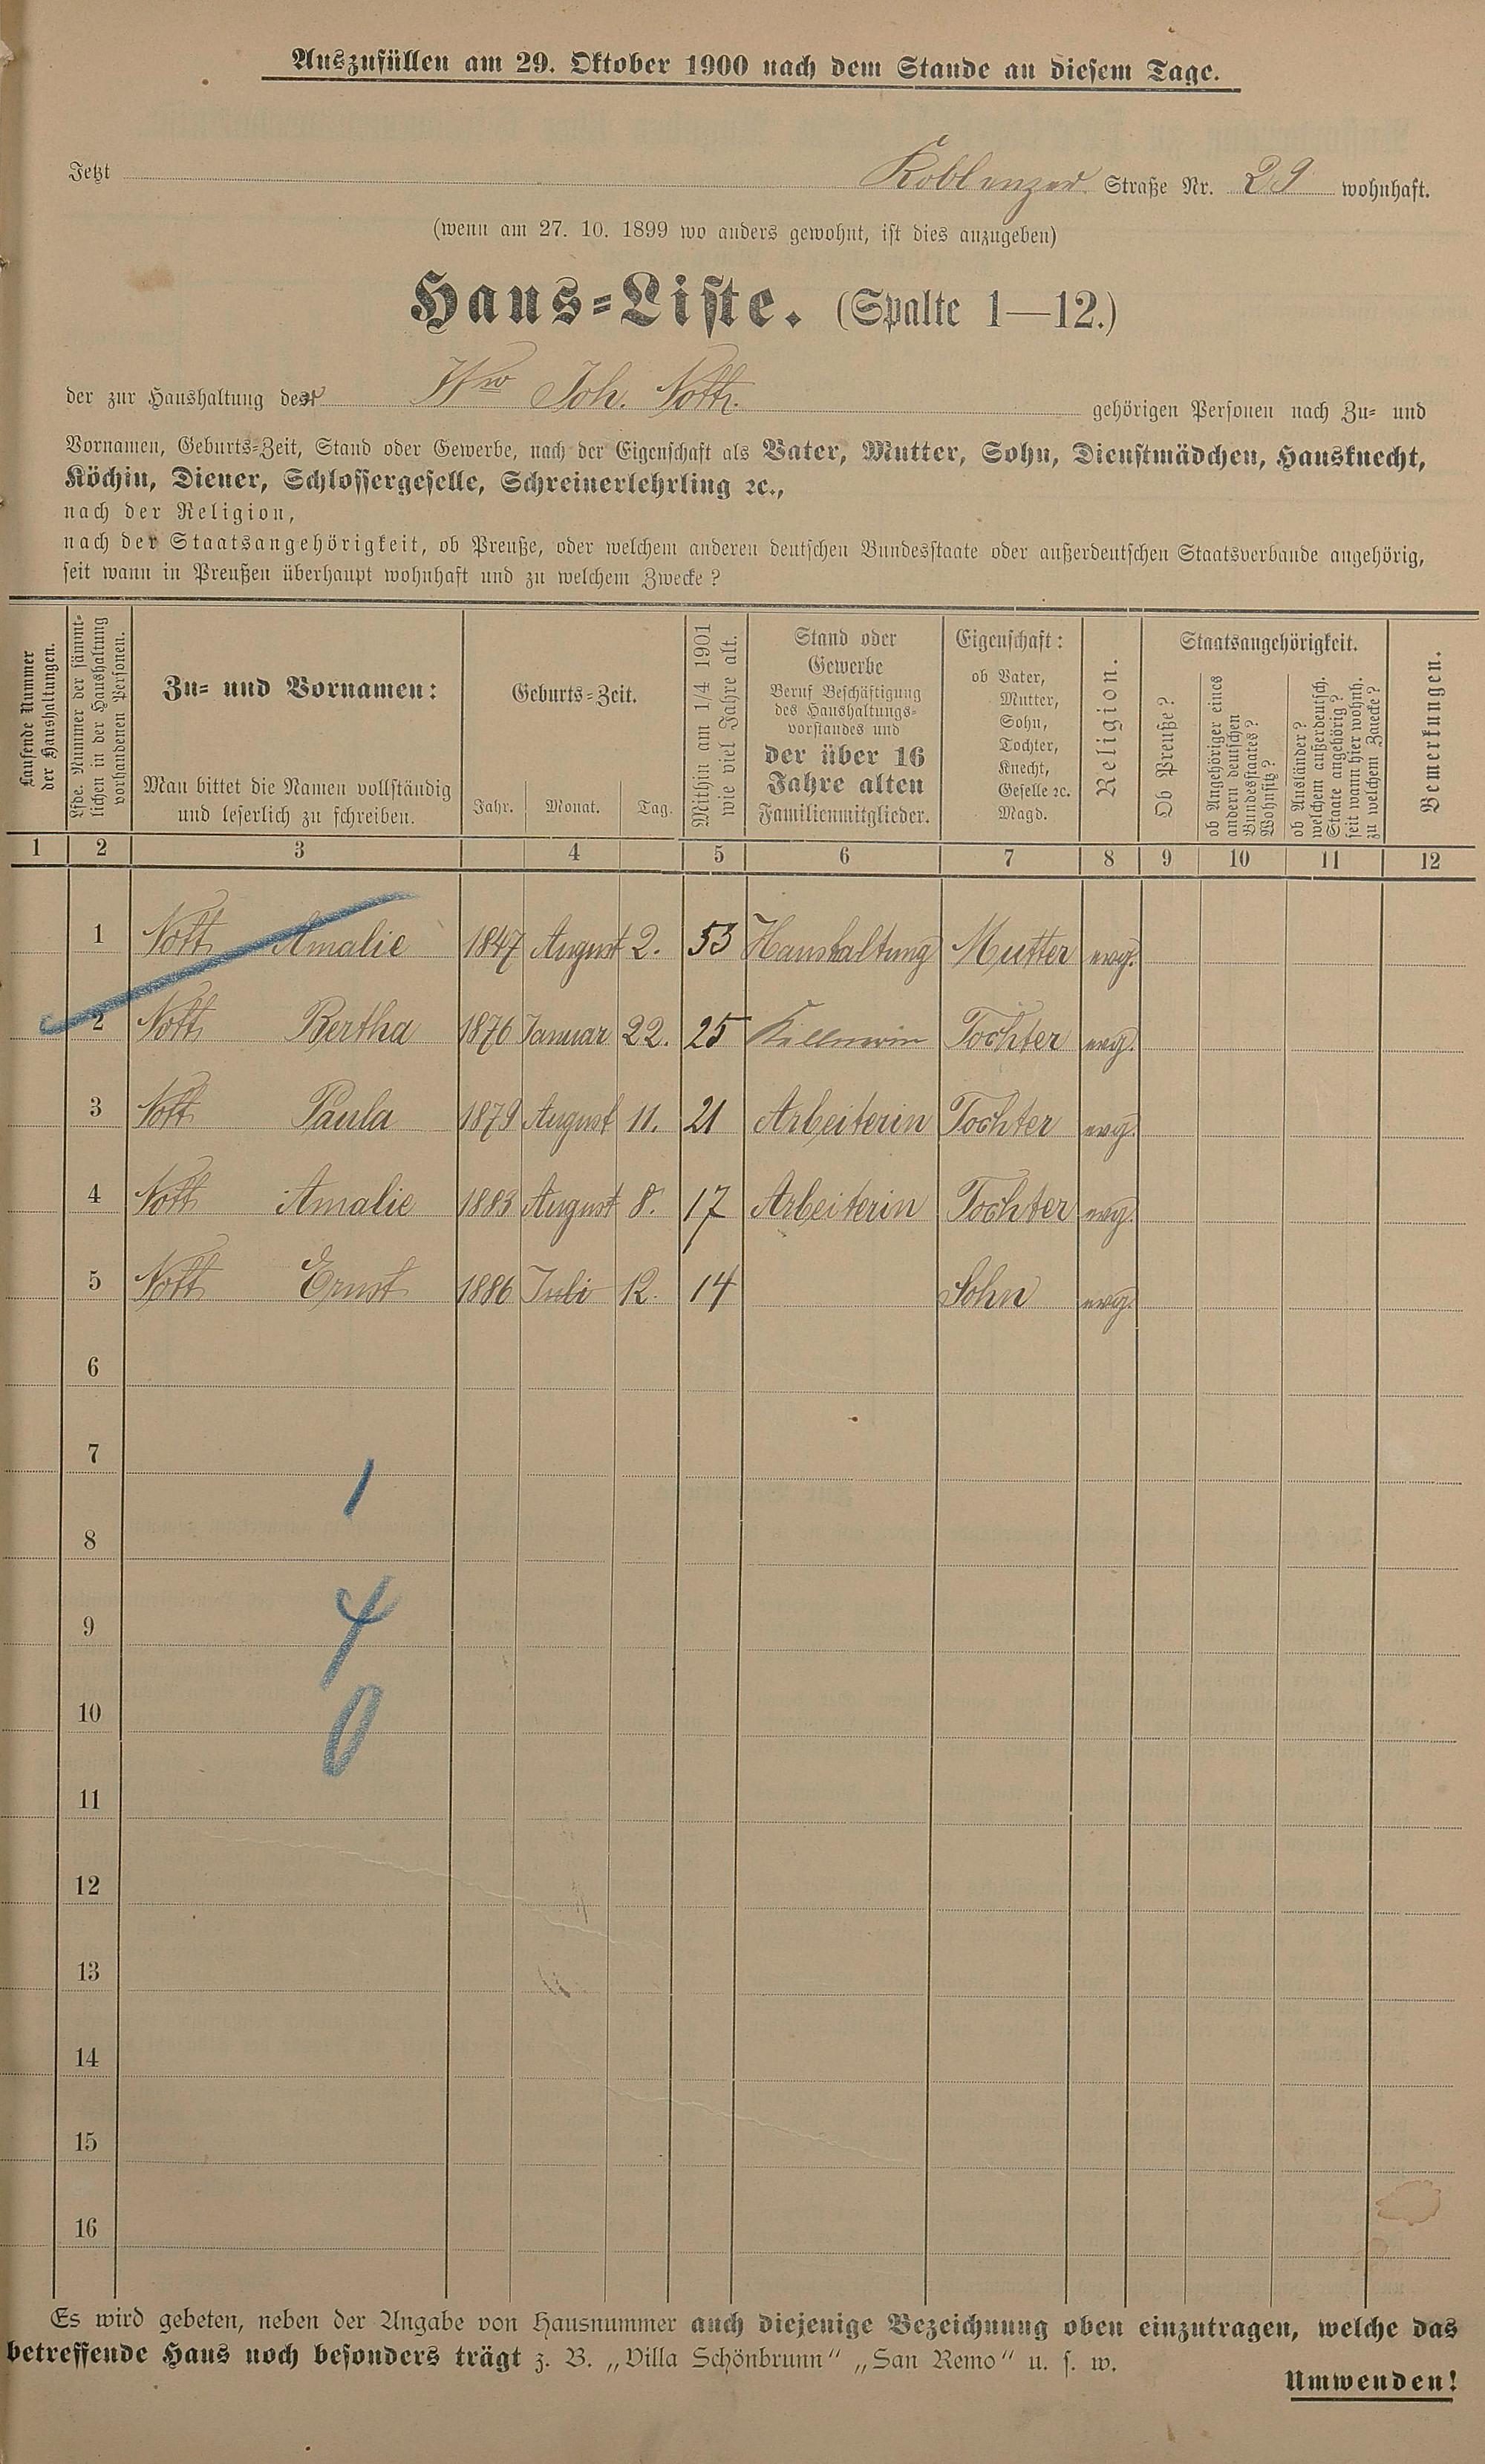 Auszufüllen am 29. Oktober 1900 nach dem Stande an diesem Tage.
Jetzt Koblenzer Straße Nr. 29 wohnhaft.
(wenn am 27. 10. 1899 wo anders gewohnt, ist dies anzugeben)
Haus=Liste. (Spalte 1—12.)
der zur Haushaltung der Ww Joh. Noth. gehörigen Personen nach Zu= und
Vornamen, Geburts=Zeit, Stand oder Gewerbe, nach der Eigenschaft als Vater, Mutter, Sohn, Dienstmädchen, Hausknecht,
Köchin, Diener, Schlossergeselle, Schreinerlehrling ꝛc.,
nach der Religion,
nach der Staatsangehörigkeit, ob Preuße, oder welchem anderen deutschen Bundesstaate oder außerdeutschen Staatsverbande angehörig,
seit wann in Preußen überhaupt wohnhaft und zu welchem Zwecke?
Laufende Nummer
der Haushaltungen.
Lfde. Nummer der sämmt=
lichen in der Haushaltung
vorhandenen Personen.
Zu= und Vornamen:
Man bittet die Namen vollständig
und leserlich zu schreiben.
Geburts=Zeit.
Jahr. Monat. Tag.
Mithin am 1/4 1901
wie viel Jahre alt.
Stand oder
Gewerbe
Beruf Beschäftigung
des Haushaltungs=
vorstandes und
der über 16
Jahre alten
Familienmitglieder.
Eigenschaft:
ob Vater,
Mutter,
Sohn,
Tochter,
Knecht,
Geselle ꝛc.
Magd.
Religion.
Staatsangehörigkeit.
Ob Preuße?
ob Angehöriger eines
andern deutschen
Bundesstaates?
Wohnsitz?
ob Ausländer?
welchem außerdeutsch.
Staate angehörig?
seit wann hier wohnh.
zu welchem Zwecke?
Bemerkungen.
1 2 3 4 5 6 7 8 9 10 11 12
1 Noth Amalie 1847 August 2. 53 Haushaltung Mutter evg.
2 Noth Bertha 1876 Januar 22. 25 Kellnerin Tochter evg.
3 Noth Paula 1879 August 11. 21 Arbeiterin Tochter evg.
4 Noth Amalie 1883 August 8. 17 Arbeiterin Tochter evg.
5 Noth Ernst 1886 Juli 12. 14 Sohn evg.
6
7
1
8
9
4
10
0
11
12
13
14
15
16
Es wird gebeten, neben der Angabe von Hausnummer auch diejenige Bezeichnung oben einzutragen, welche das
betreffende Haus noch besonders trägt z. B. „Villa Schönbrunn“ „San Remo“ u. s. w.
Umwenden!